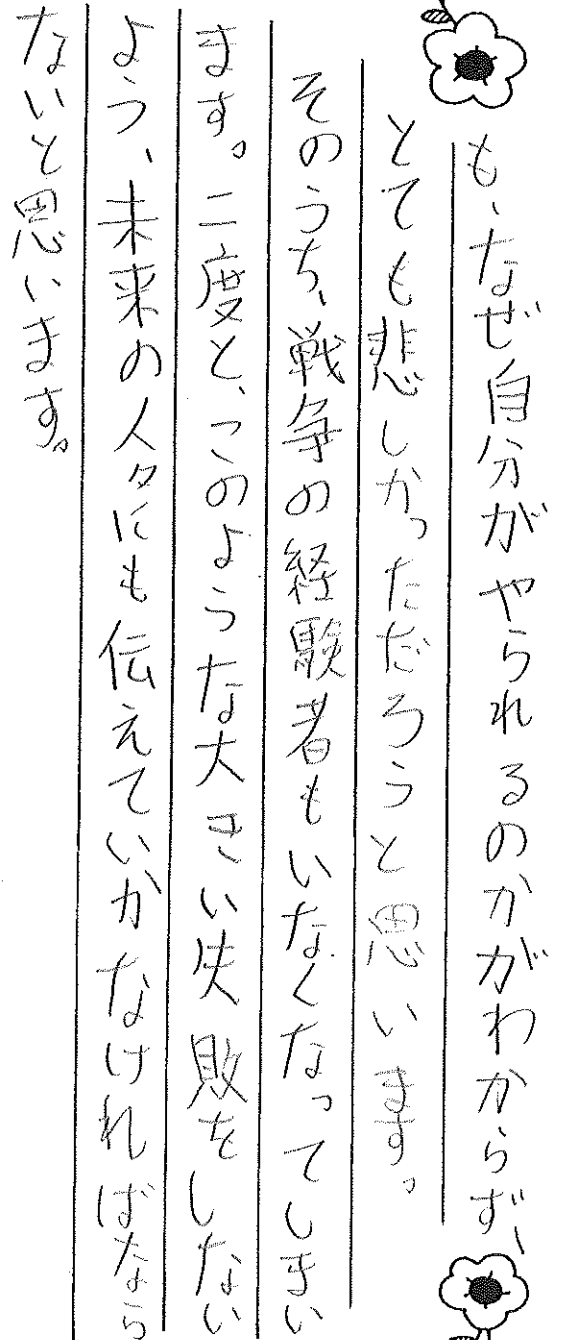 も、なぜ自分がやられるのかがわからず、
とても悲しかっただろうと思います。
そのうち、戦争の経験者もいなくなってしまい
ます。二度と、このような大きい失敗をしない
よう、未来の人々にも伝えていかなければなら
ないと思います。